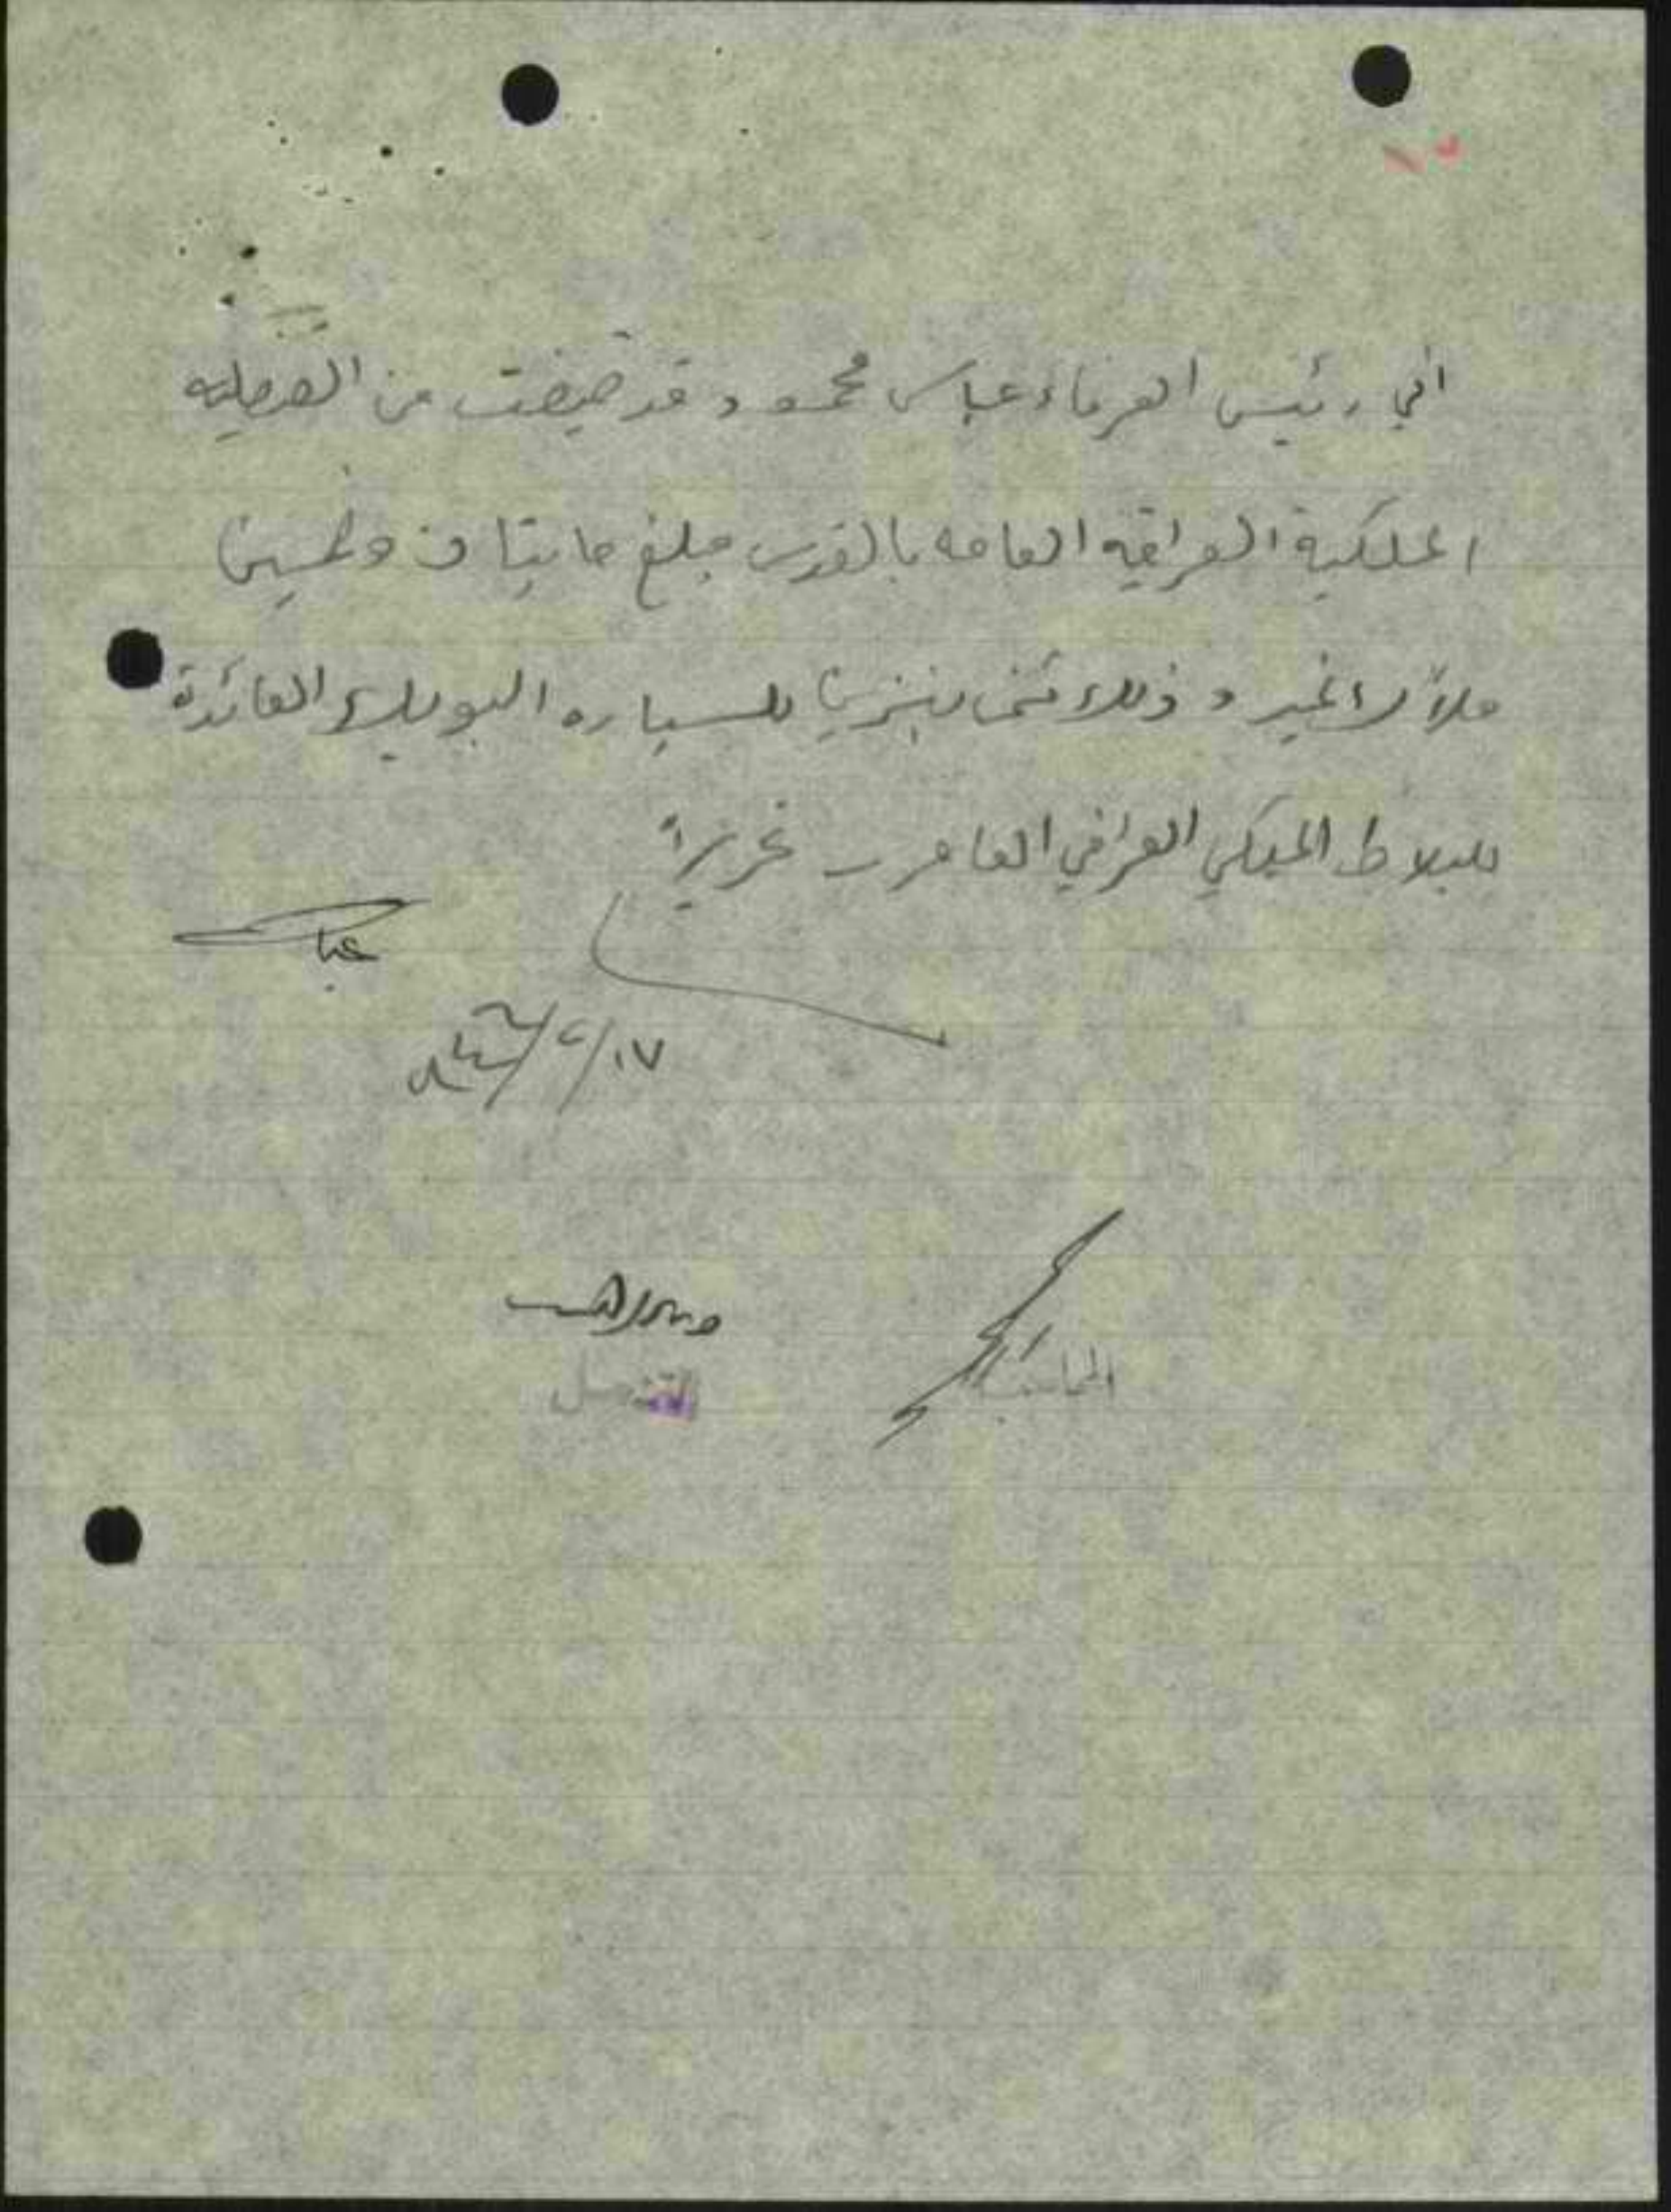 اني رئيس العرفاء عباس محمود قد قبضت من القنصليه
الملكية العراقيه العامه بالقدس مبلغ مايتان وخمسين
ملاً لاغير وذلك ثمن بنزين للسياره البويك العائدة
للبلاط الملكي العراقي العامر ـ تحريراً
عباس
١٧/
المحاسب
القنصل